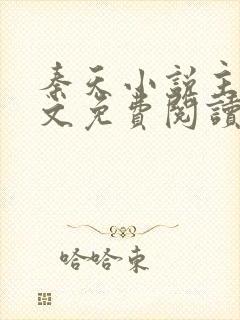 秦天小説主
文免費閱讀
哈哈東